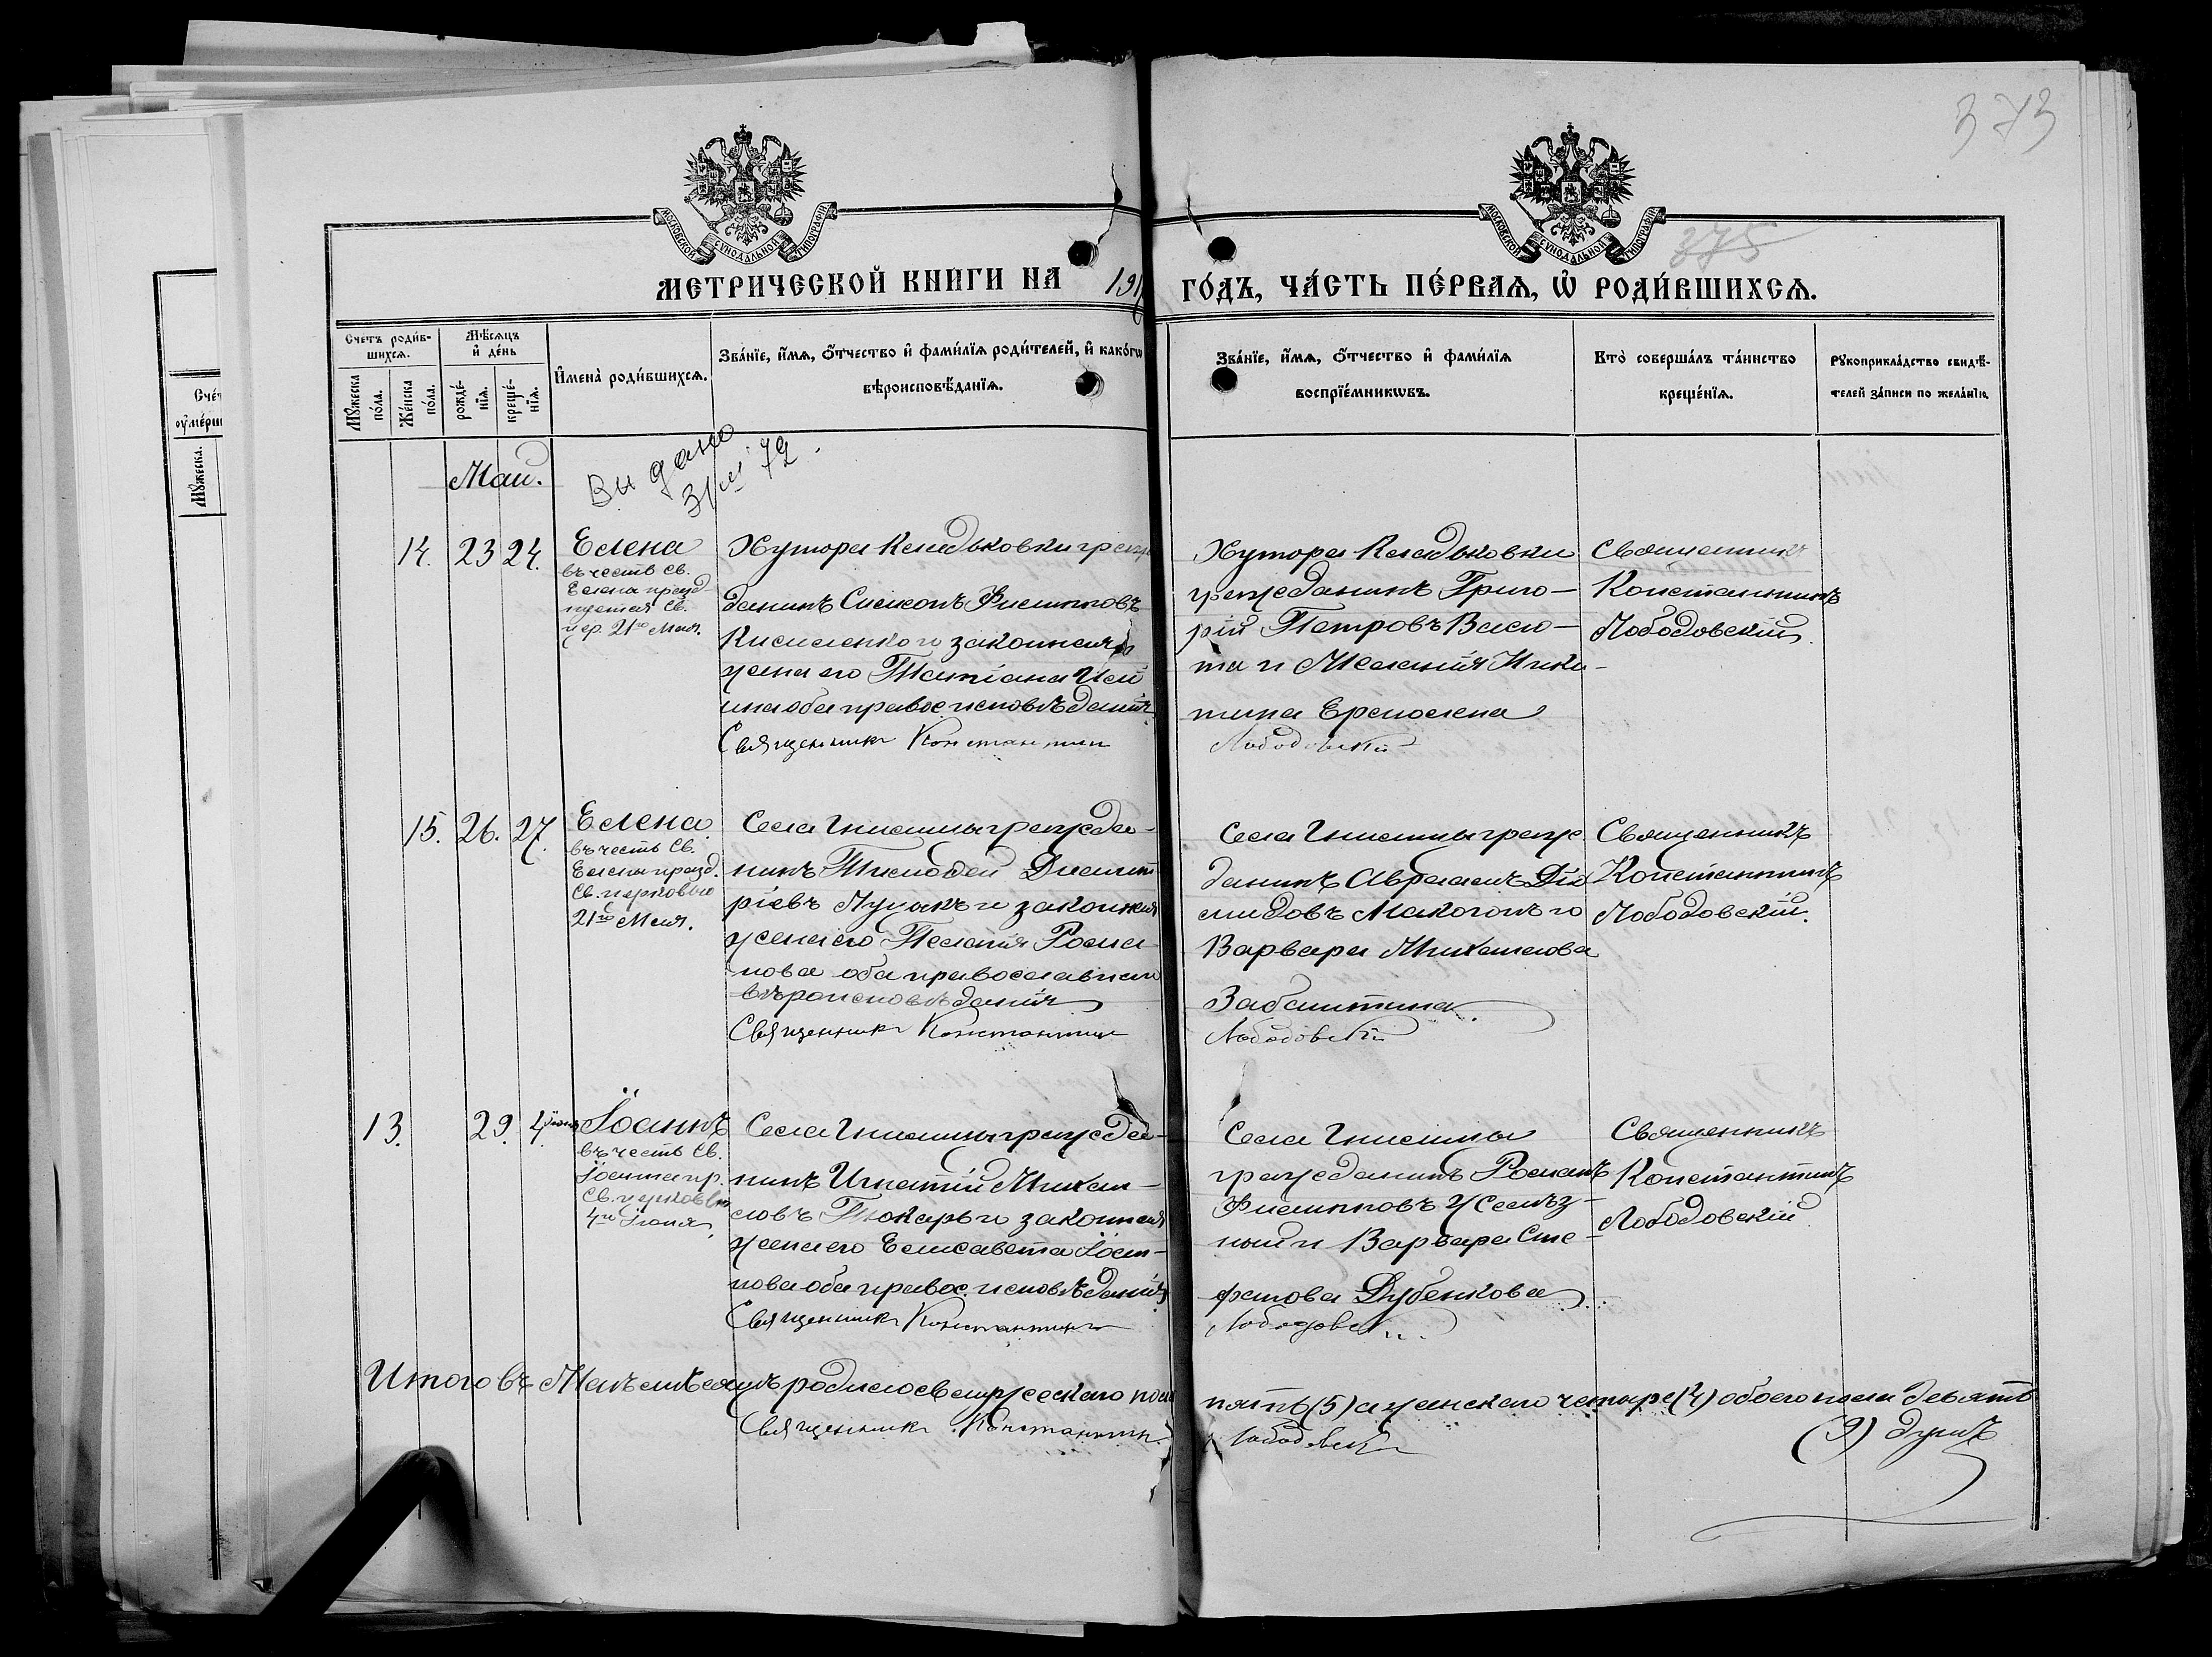 373
375
МОСКОВСКОЙ СѴНОДАЛЬНОЙ ТИПОГРАФІИ
МОСКОВСКОЙ СѴНОДАЛЬНОЙ ТИПОГРАФІИ
МЕТРИЧЕСКОЙ КНИГИ НА 191
ГО́ДЪ, ЧА́СТЬ ПЕ́РВАЯ, Ѡ҆ РОДИ́ВШИХСЯ.
Счетъ роди́в-
шихся.
Мѣ́сяцъ
и҆ де́нь
Мꙋжеска
по́ла.
Же́нска
по́ла.
рожде́-
нїя.
креще́-
нїя.
И҆мена̀ роди́вшихся.
Зва́нїе, и҆́мя, ѻ҆́тчество и҆ фами́лїя роди́телей, и҆ како́гѡ
вѣроисповѣ́данїя.
Зва́нїе, и҆́мя, ѻ҆́тчество и҆ фами́лїя
воспрїе́мникѡвъ.
Кто̀ соверша́лъ та́инство
креще́нїя.
Рꙋкоприкла́дство свидѣ́-
телей за́писи по жела́нїю.
Май.
Видано
72.
14. 23 24.
Елена
въ честь Св.
Елена празд-
нуемая Св.
цер. 21го Мая.
Хутора
данинъ Филипповъ
законная
жена его Татіана
ина оба правос исповѣданія
Священникъ Константин
Хутора
гражданинъ Григо-
рій Петровъ
та и Меланія Ники-
тина
Лободовскій
Священникъ
Константинъ
Лободовскій.
15. 26. 27.
Елена
въ честь Св.
Елены празд.
Св. церковью
21го Мая.
Села Гнилицы гражда-
нинъ Тимофей Димит
ріевъ и законная
жена его Пелагія Рома
нова оба православнаго
вѣроисповѣданія
Священникъ Константин
Села Гнилицы граж
данинъ Авраамъ
Макогонъ и
Варвара Михаилова
Лободовскій
Священникъ
Константинъ
Лободовскій.
13. 29. 4 іюня
Іоаннъ
въ честь Св.
Іоанна пр.
Св. церковью
4го Іюня
Села Гнилицы гражда-
нинъ Игнатій Михаи-
ловъ Токарь и законная
жена его Елисавета Іоан-
нова оба правос. исповѣданія
Священникъ Константин
Села Гнилицы
гражданинъ Романъ
Филипповъ
и Варвара Сте-
фанова Дубенкова
Лободовскій
Священникъ
Константинъ
Лободовскій
Итого въ Маѣ мѣсяцѣ родилось мужескаго пола
пять (5) а женскаго четыре (4) обоего пола девять
(9) душъ
Священникъ Константин
Лободовскій